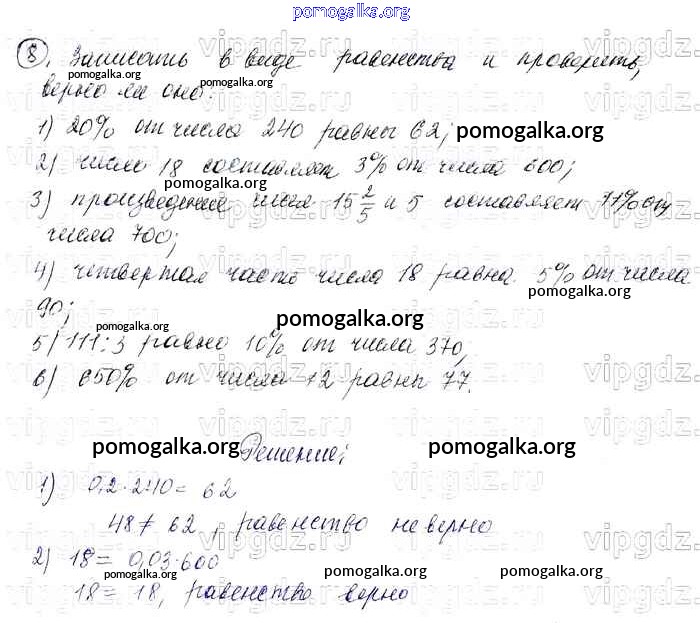 pomogalka.org
8. Записать в виде равенства и проверить,
pomogalka.org pomogalka.org
верно ли оно:
1) 20% от числа 240 равны 62; pomogalka.org
2) число 18 составляет 3% от числа 600;
pomogalka.org
3) произведение чисел 15 2/5 и 5 составляет 77% от
числа 700;
4) четвертая часть числа 18 равна 5% от числа
pomogalka.org
90;
pomogalka.org pomogalka.org
5) 111:3 равно 10% от числа 370,
6) 650% от числа 12 равны 77.
pomogalka.org Решение: pomogalka.org
1) 0,2·240 = 62
48≠ 62, равенство неверно
2) 18 = 0,03·600
pomogalka.org pomogalka.org pomogalka.org
18 = 18, равенство верно